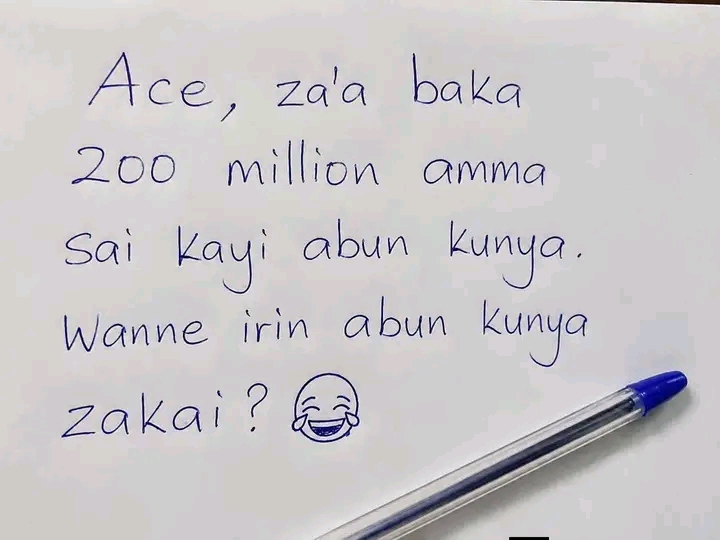 Ace, za'a baka
200 million amma
sai kayi abun kunya.
Wanne irin abun kunya
zakai? 😂